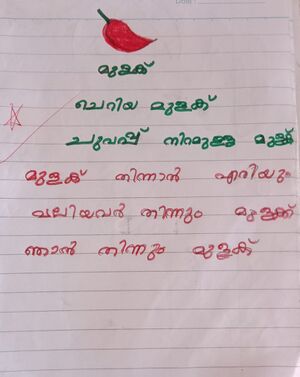 മുളക്
ചെറിയ മുളക്
ചുവപ്പ് നിറമുള്ള മുളക്
മുളക് തിന്നാൻ എരിയും
വലിയവർ തിന്നും മുളക്
ഞാൻ തിന്നും മുളക്